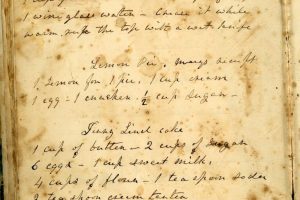 1 wine glass water - Crease it while
warm rub the top with a wet knife
Lemon Pie, Marys receipt
1 Lemon for 1 pie. 1 cup cream
1 egg - 1 cracker. 1/2 cup sugar -
Jenny Lind cake
1 cup of butter - 2 cups of sugar
6 eggs - 1 cup sweet milk,
4 cups of flour - 1 teaspoon soda
2 teaspoon cream tartar